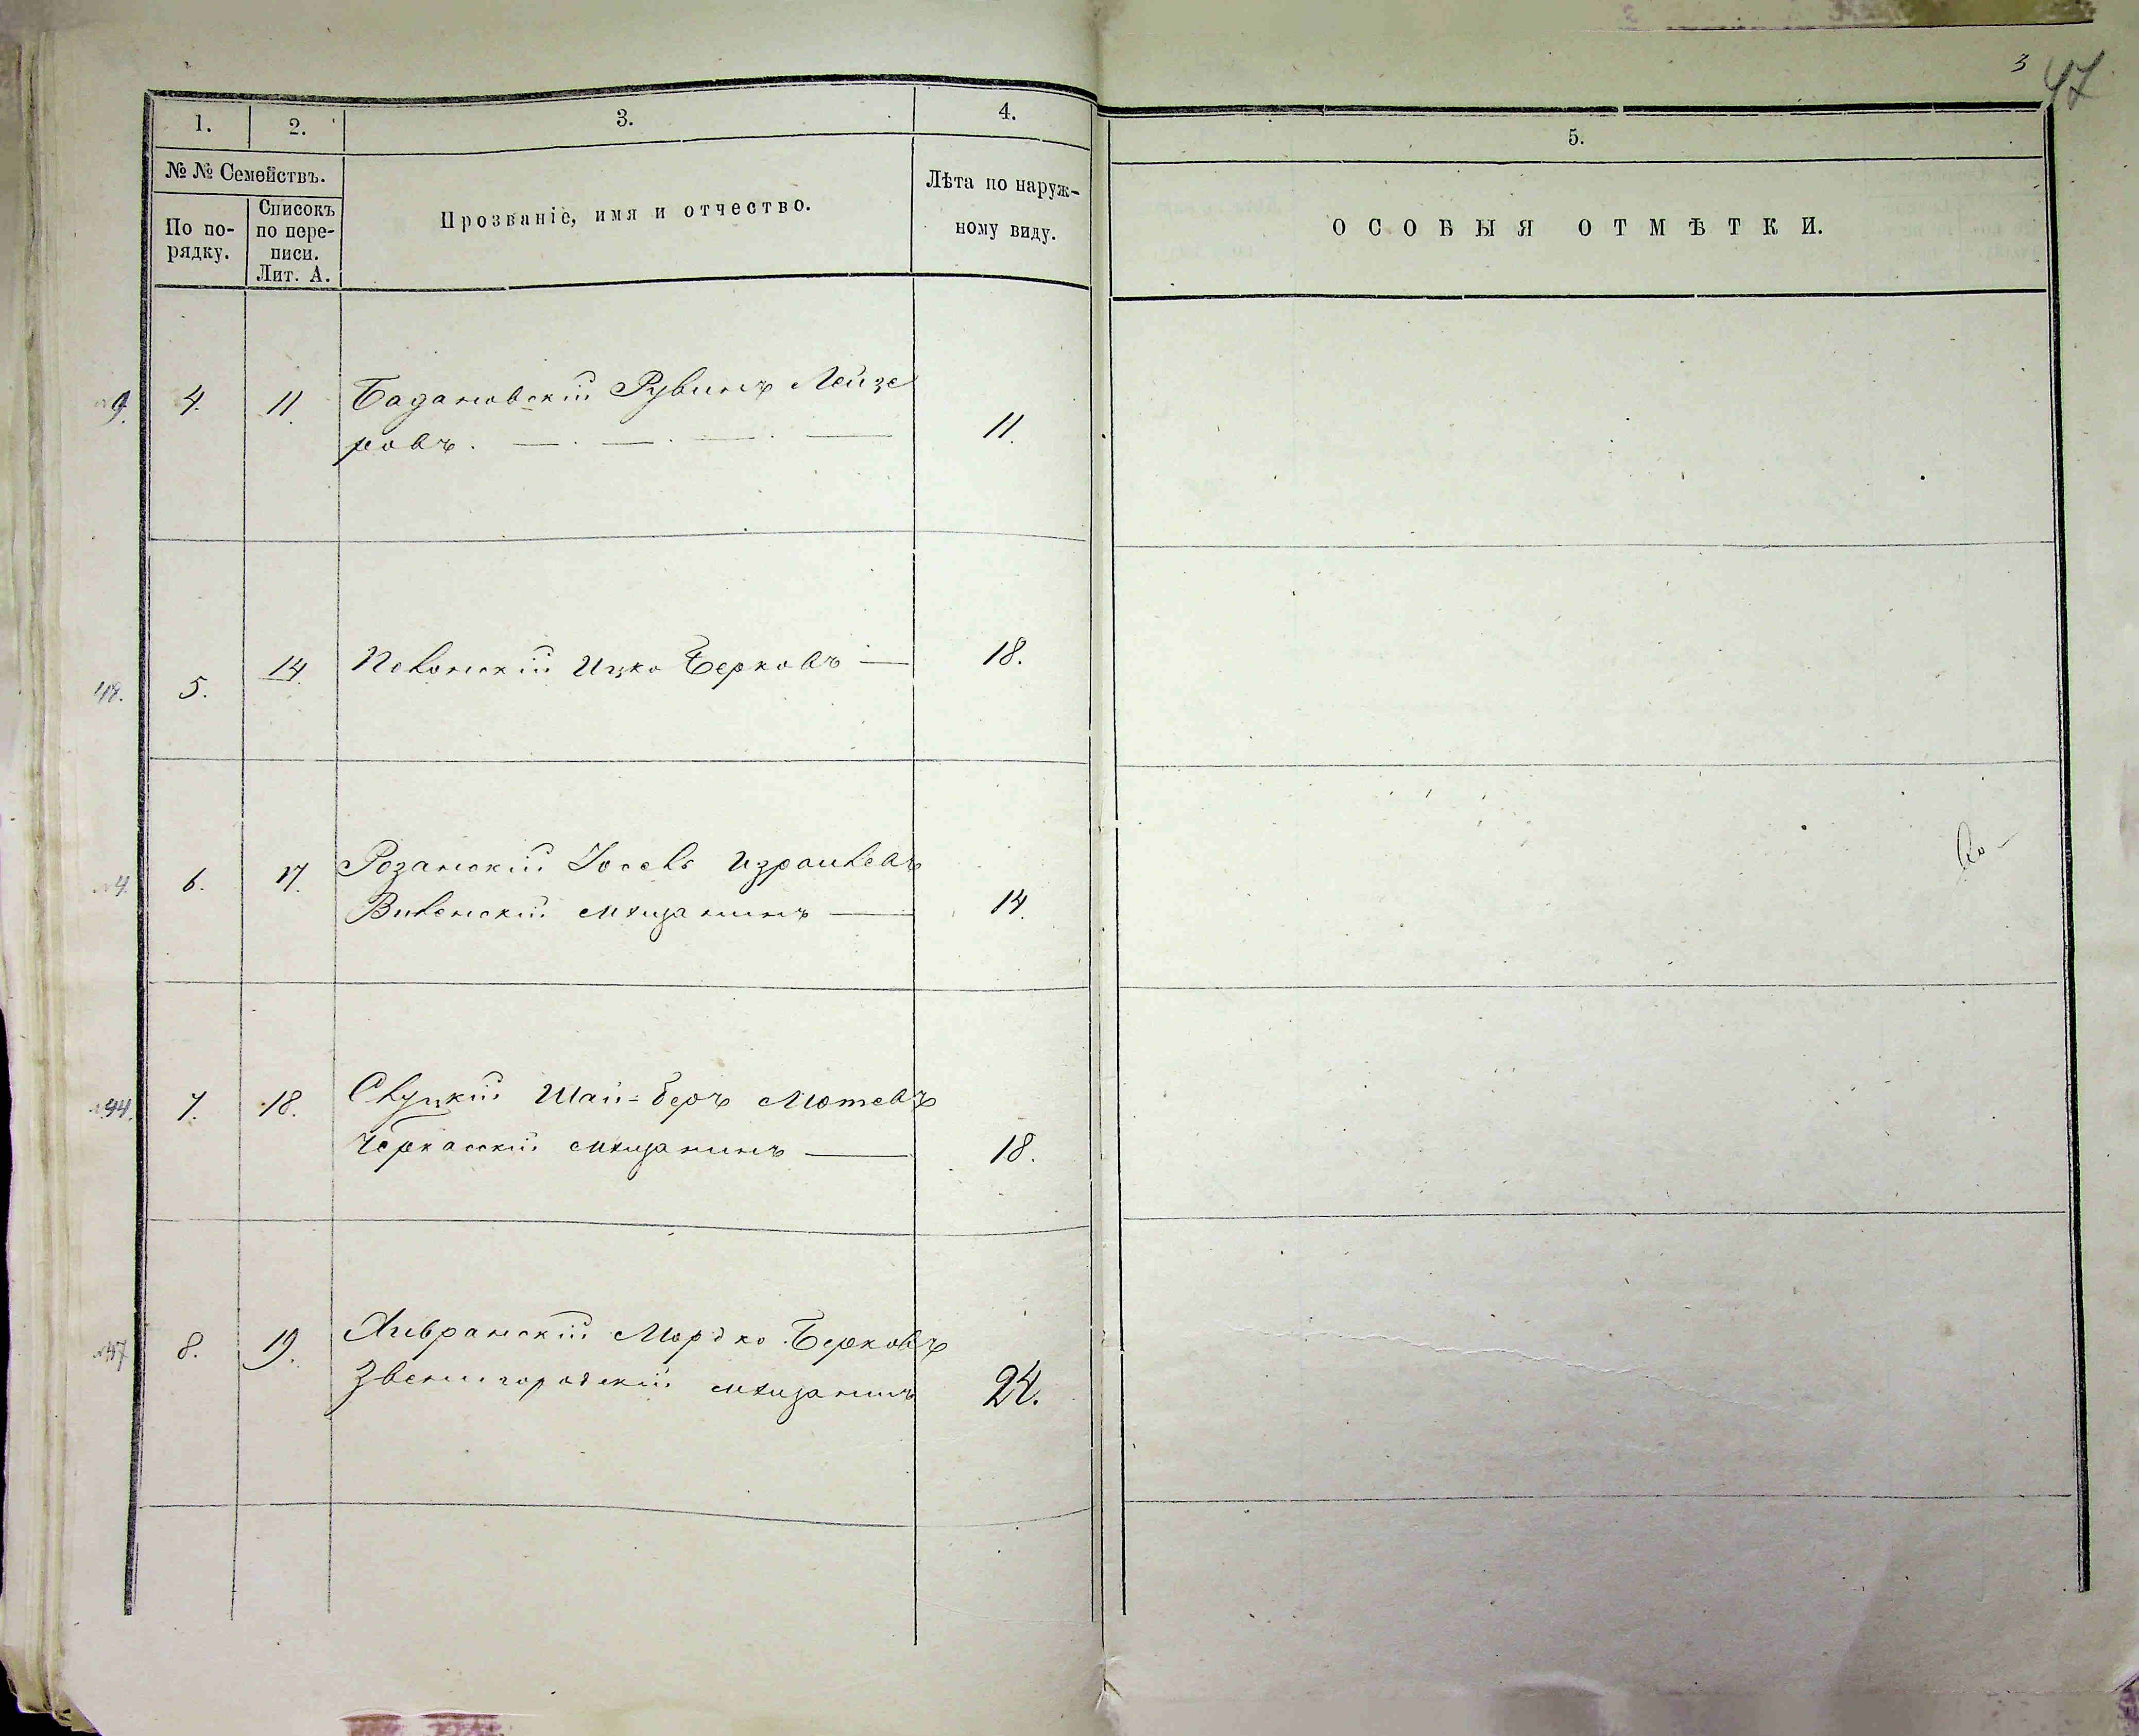 3
47
1.
2.
3.
4.
5.
№ № Семействъ.
По по-
рядку.
Списокъ
по пере-
писи.
Лит. А.
Прозваніе, имя и отчество.
Лѣта по наруж-
ному виду.
ОСОБЫЯ ОТМѢТКИ.
9. 4. 11. Богановскій Рувинъ Лейзе
ровъ. — . — . — . — 11.
48. 5. 14. Ицко Берковъ — 18.
№4. 6. 17. Розанскій Іосель Израилевъ
Виленскій мѣщанинъ — 14.
№44. 7. 18. Слуцкій Шай-беръ Мотевъ
Черкасскій мѣщанинъ — 18.
№47 8. 19. Ливранскій Мордко Берковъ
Звенигородскій мѣщанинъ 24.